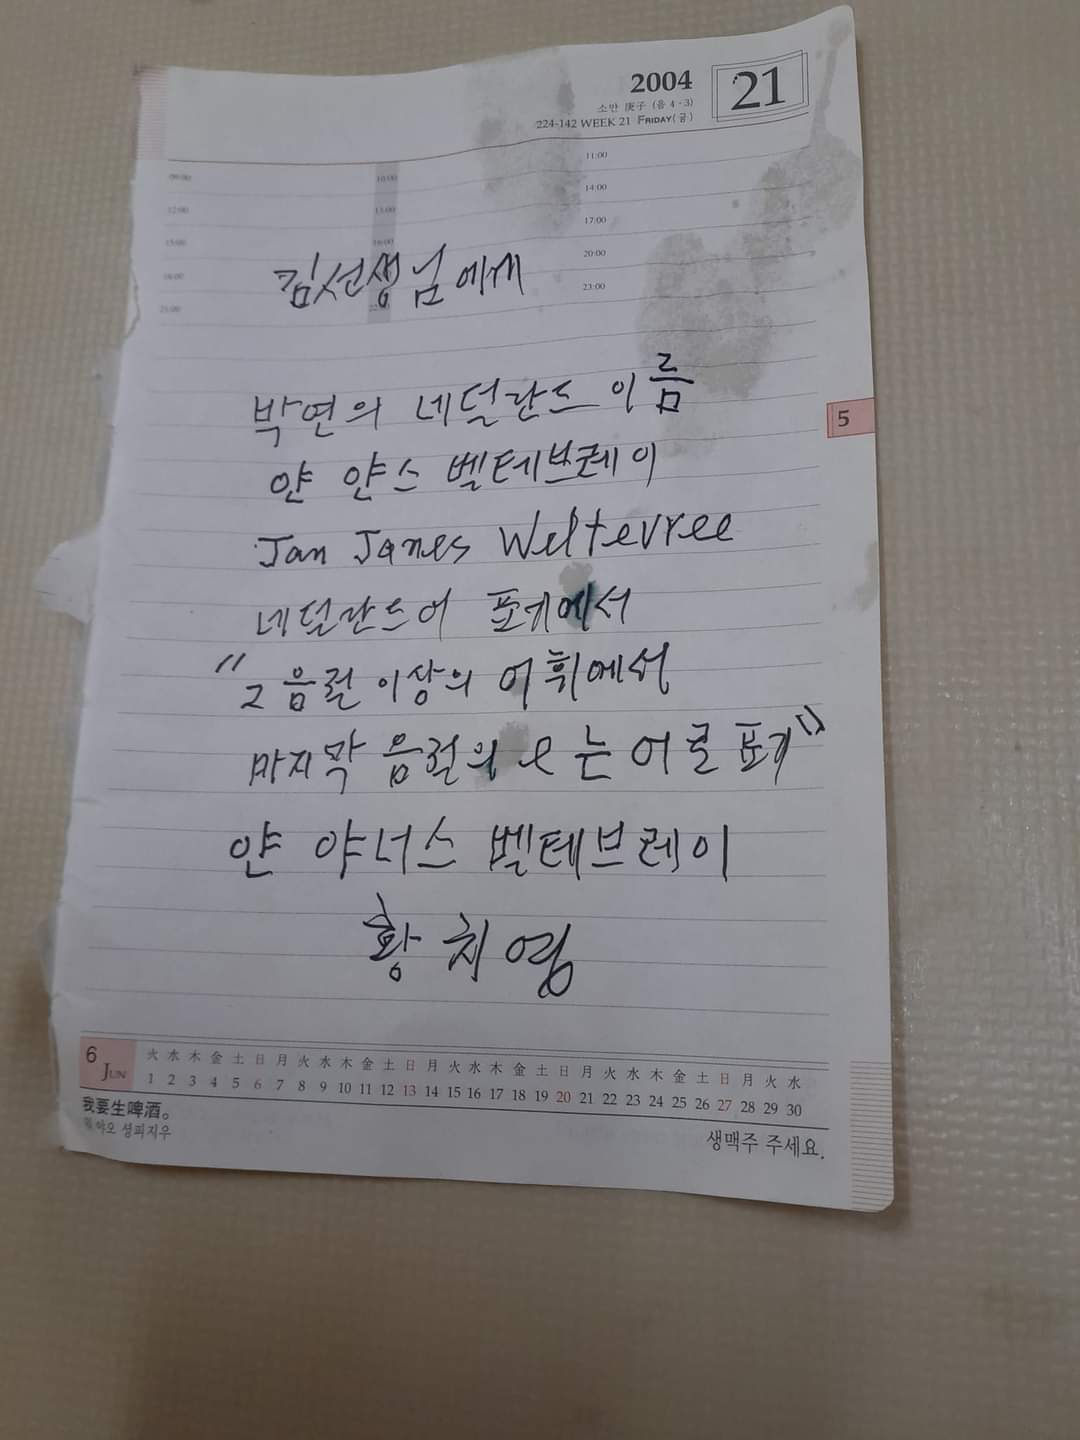 2004 21
소만 庚子 (음 4-3)
224-142 WEEK 21 FRIDAY(금)
09:00 10:00 11:00
12:00 13:00 14:00
15:00 16:00 17:00
18:00 20:00
21:00 22:00 23:00
김선생님에게
박연의 네덜란드 이름
5
얀 얀스 벨테브레이
Jan Janes Weltevree
네덜란드어 표기에서
"2음절 이상의 어휘에서
마지막 음절의 e는 어로 표기"
얀 야너스 벨테브레이
황치영
6 JUN 火 水 木 金 土 日 月 火 水 木 金 土 日 月 火 水 木 金 土 日 月 火 水 木 金 土 日 月 火 水
1 2 3 4 5 6 7 8 9 10 11 12 13 14 15 16 17 18 19 20 21 22 23 24 25 26 27 28 29 30
我要生啤酒。
워 야오 셩피지우 생맥주 주세요.